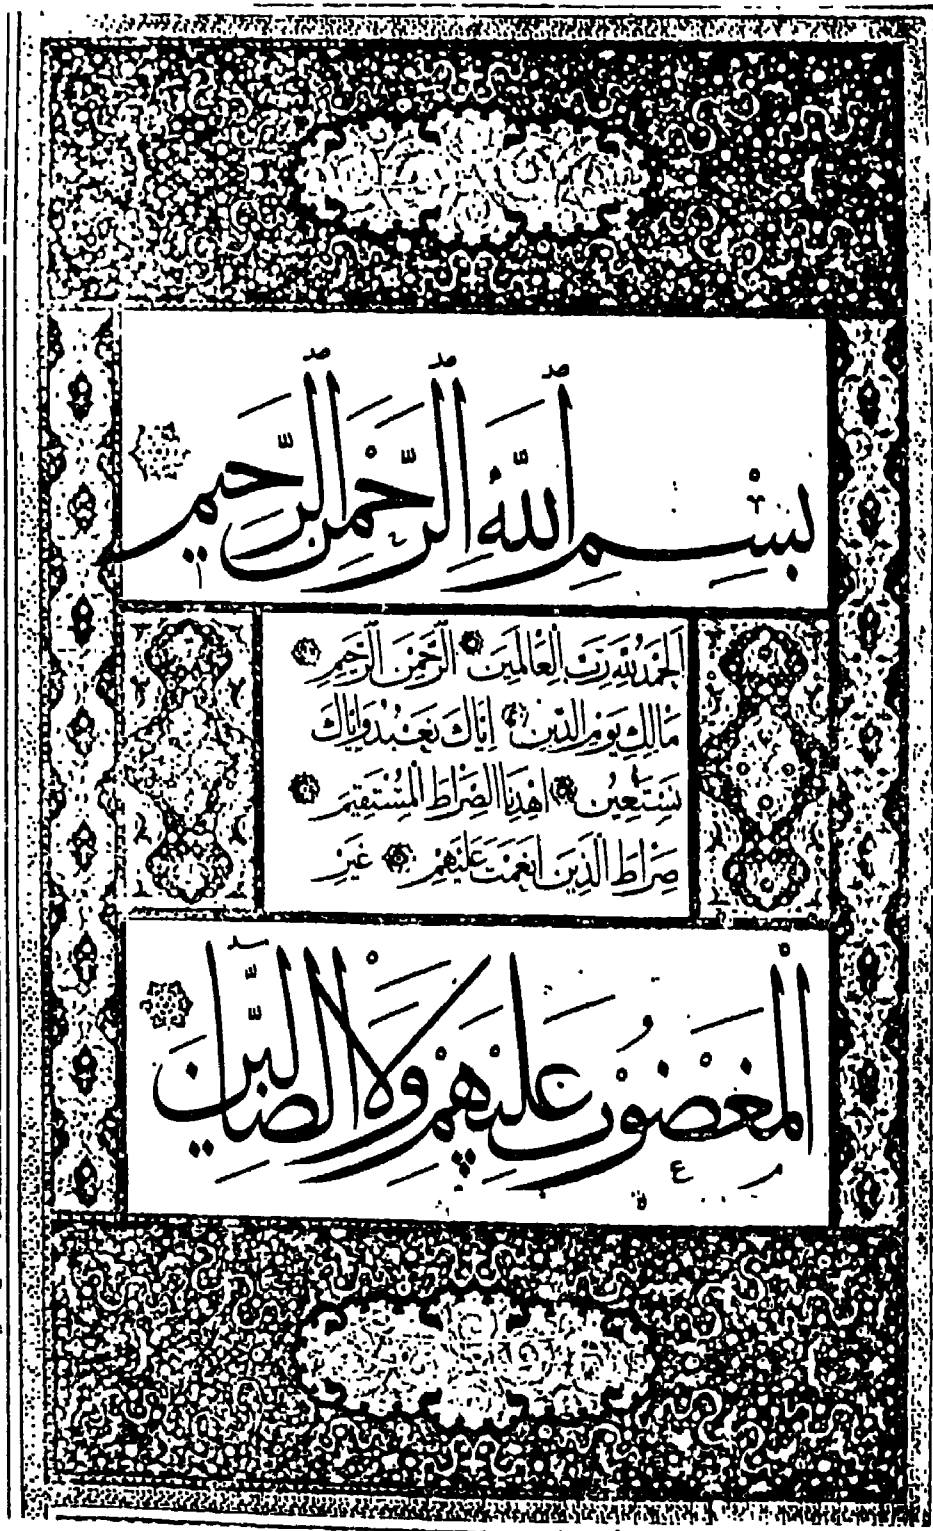 بِسْمِ ٱللَّهِ ٱلرَّحْمٰنِ ٱلرَّحِيمِ
اَلْحَمْدُ لِلّٰهِ رَبِّ الْعَالَمِينَ الرَّحْمٰنِ الرَّحِيمِ
مَالِكِ يَوْمِ الدِّينِ اِيَّاكَ نَعْبُدُ وَاِيَّاكَ
نَسْتَعِينُ اِهْدِنَا الصِّرَاطَ الْمُسْتَقِيمَ
صِرَاطَ الَّذِينَ اَنْعَمْتَ عَلَيْهِمْ غَيْرِ
الْمَغْضُوبِ عَلَيْهِمْ وَلَا الضَّالِّينَ